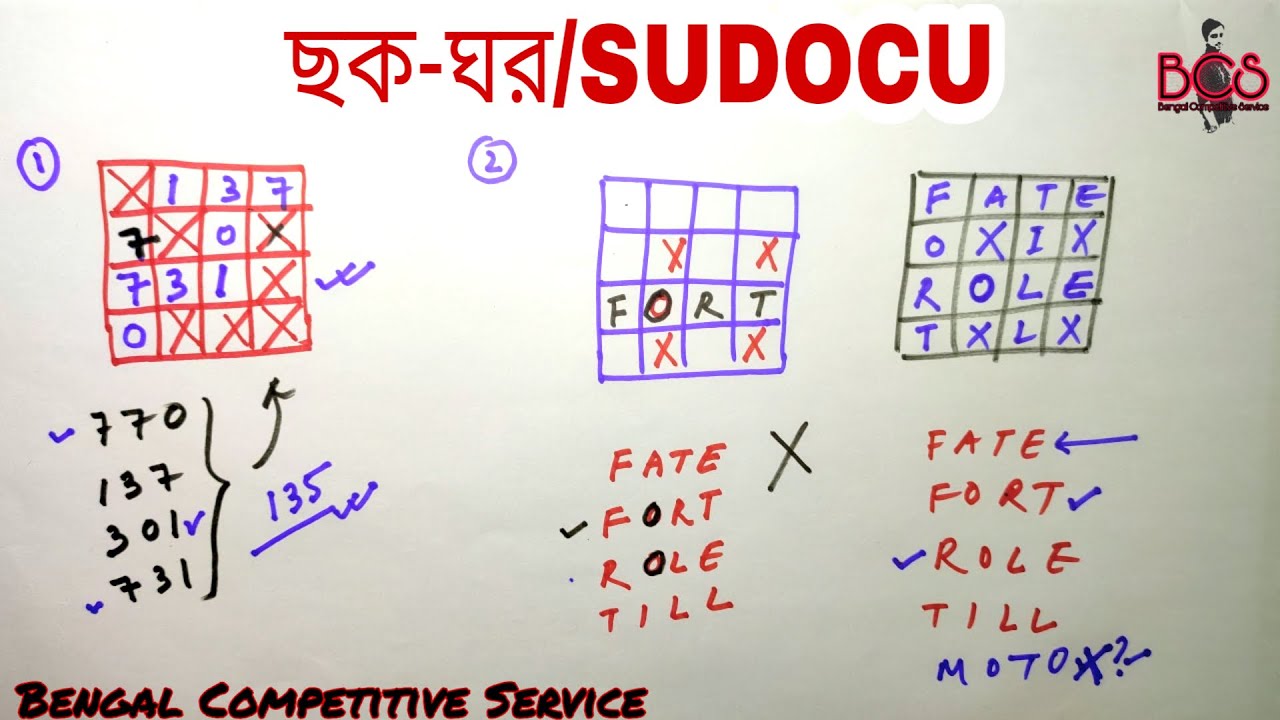 ছক-ঘর/SUDOCU
BCS
Bengal Competitive Service
1
X 1 3 7
7 X 0 X
7 3 1 X
0 X X X
770
137
301
731
135
2
X X
F O R T
X X
FATE
FORT
ROLE
TILL
X
F A T E
O X I X
R O L E
T X L X
FATE
FORT
ROLE
TILL
MOTOX?
BENGAL COMPETITIVE SERVICE